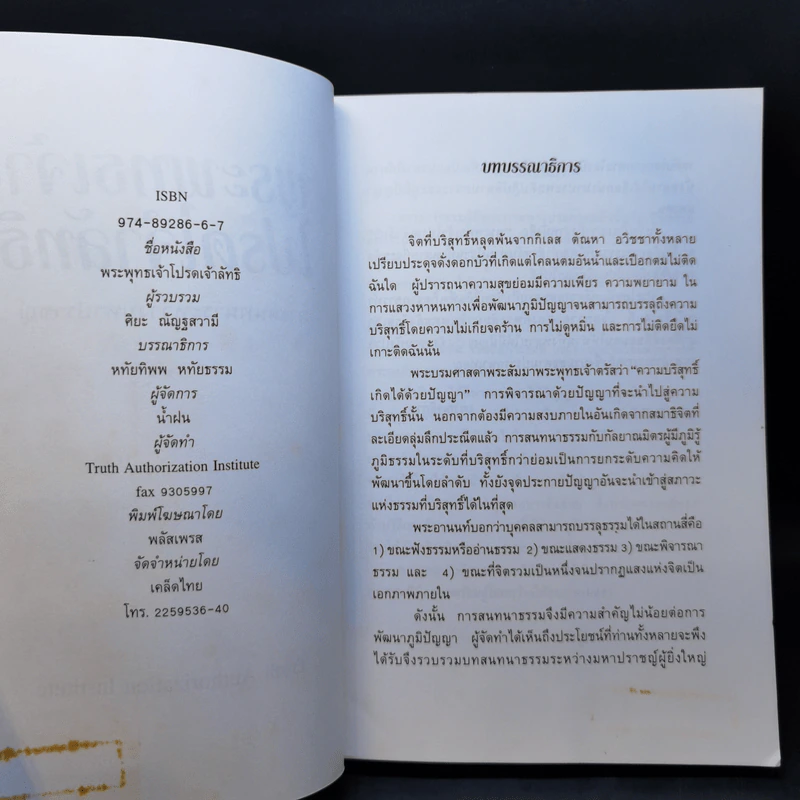 ISBN
974-89286-6-7
ชื่อหนังสือ
พระพุทธเจ้าโปรดเจ้าลัทธิ
ผู้รวบรวม
ศิยะ ณัญฐสวามี
บรรณาธิการ
หทัยทิพพ หทัยธรรม
ผู้จัดการ
น้ำฝน
ผู้จัดทำ
Truth Authorization Institute
fax 9305997
พิมพ์โฆษณาโดย
พลัสเพรส
จัดจำหน่ายโดย
เคล็ดไทย
โทร. 2259536-40
บทบรรณาธิการ
จิตที่บริสุทธิ์หลุดพ้นจากกิเลส ตัณหา อวิชชาทั้งหลาย
เปรียบประดุจดั่งดอกบัวที่เกิดแต่โคลนตมอันน้ำและเปือกตมไม่ติด
ฉันใด ผู้ปรารถนาความสุขย่อมมีความเพียร ความพยายาม ใน
การแสวงหาหนทางเพื่อพัฒนาภูมิปัญญาจนสามารถบรรลุถึงความ
บริสุทธิ์โดยความไม่เกียจคร้าน การไม่ดูหมิ่น และการไม่ติดยึดไม่
เกาะติดฉันนั้น
พระบรมศาสดาพระสัมมาพระพุทธเจ้าตรัสว่า "ความบริสุทธิ์
เกิดได้ด้วยปัญญา" การพิจารณาด้วยปัญญาที่จะนำไปสู่ความ
บริสุทธิ์นั้น นอกจากต้องมีความสงบภายในอันเกิดจากสมาธิจิตที่
ละเอียดลุ่มลึกประณีตแล้ว การสนทนาธรรมกับกัลยาณมิตรผู้มีภูมิรู้
ภูมิธรรมในระดับที่บริสุทธิ์กว่าย่อมเป็นการยกระดับความคิดให้
พัฒนาขึ้นโดยลำดับ ทั้งยังจุดประกายปัญญาอันจะนำเข้าสู่สภาวะ
แห่งธรรมที่บริสุทธิ์ได้ในที่สุด
พระอานนท์บอกว่าบุคคลสามารถบรรลุธรรมได้ในสถานสี่คือ
1) ขณะฟังธรรมหรืออ่านธรรม 2) ขณะแสดงธรรม 3) ขณะพิจารณา
ธรรม และ 4) ขณะที่จิตรวมเป็นหนึ่งจนปรากฏแสงแห่งจิตเป็น
เอกภาพภายใน
ดังนั้น การสนทนาธรรมจึงมีความสำคัญไม่น้อยต่อการ
พัฒนาภูมิปัญญา ผู้จัดทำได้เห็นถึงประโยชน์ที่ท่านทั้งหลายจะพึง
ได้รับจึงรวบรวมบทสนทนาธรรมระหว่างมหาปราชญ์ผู้ยิ่งใหญ่